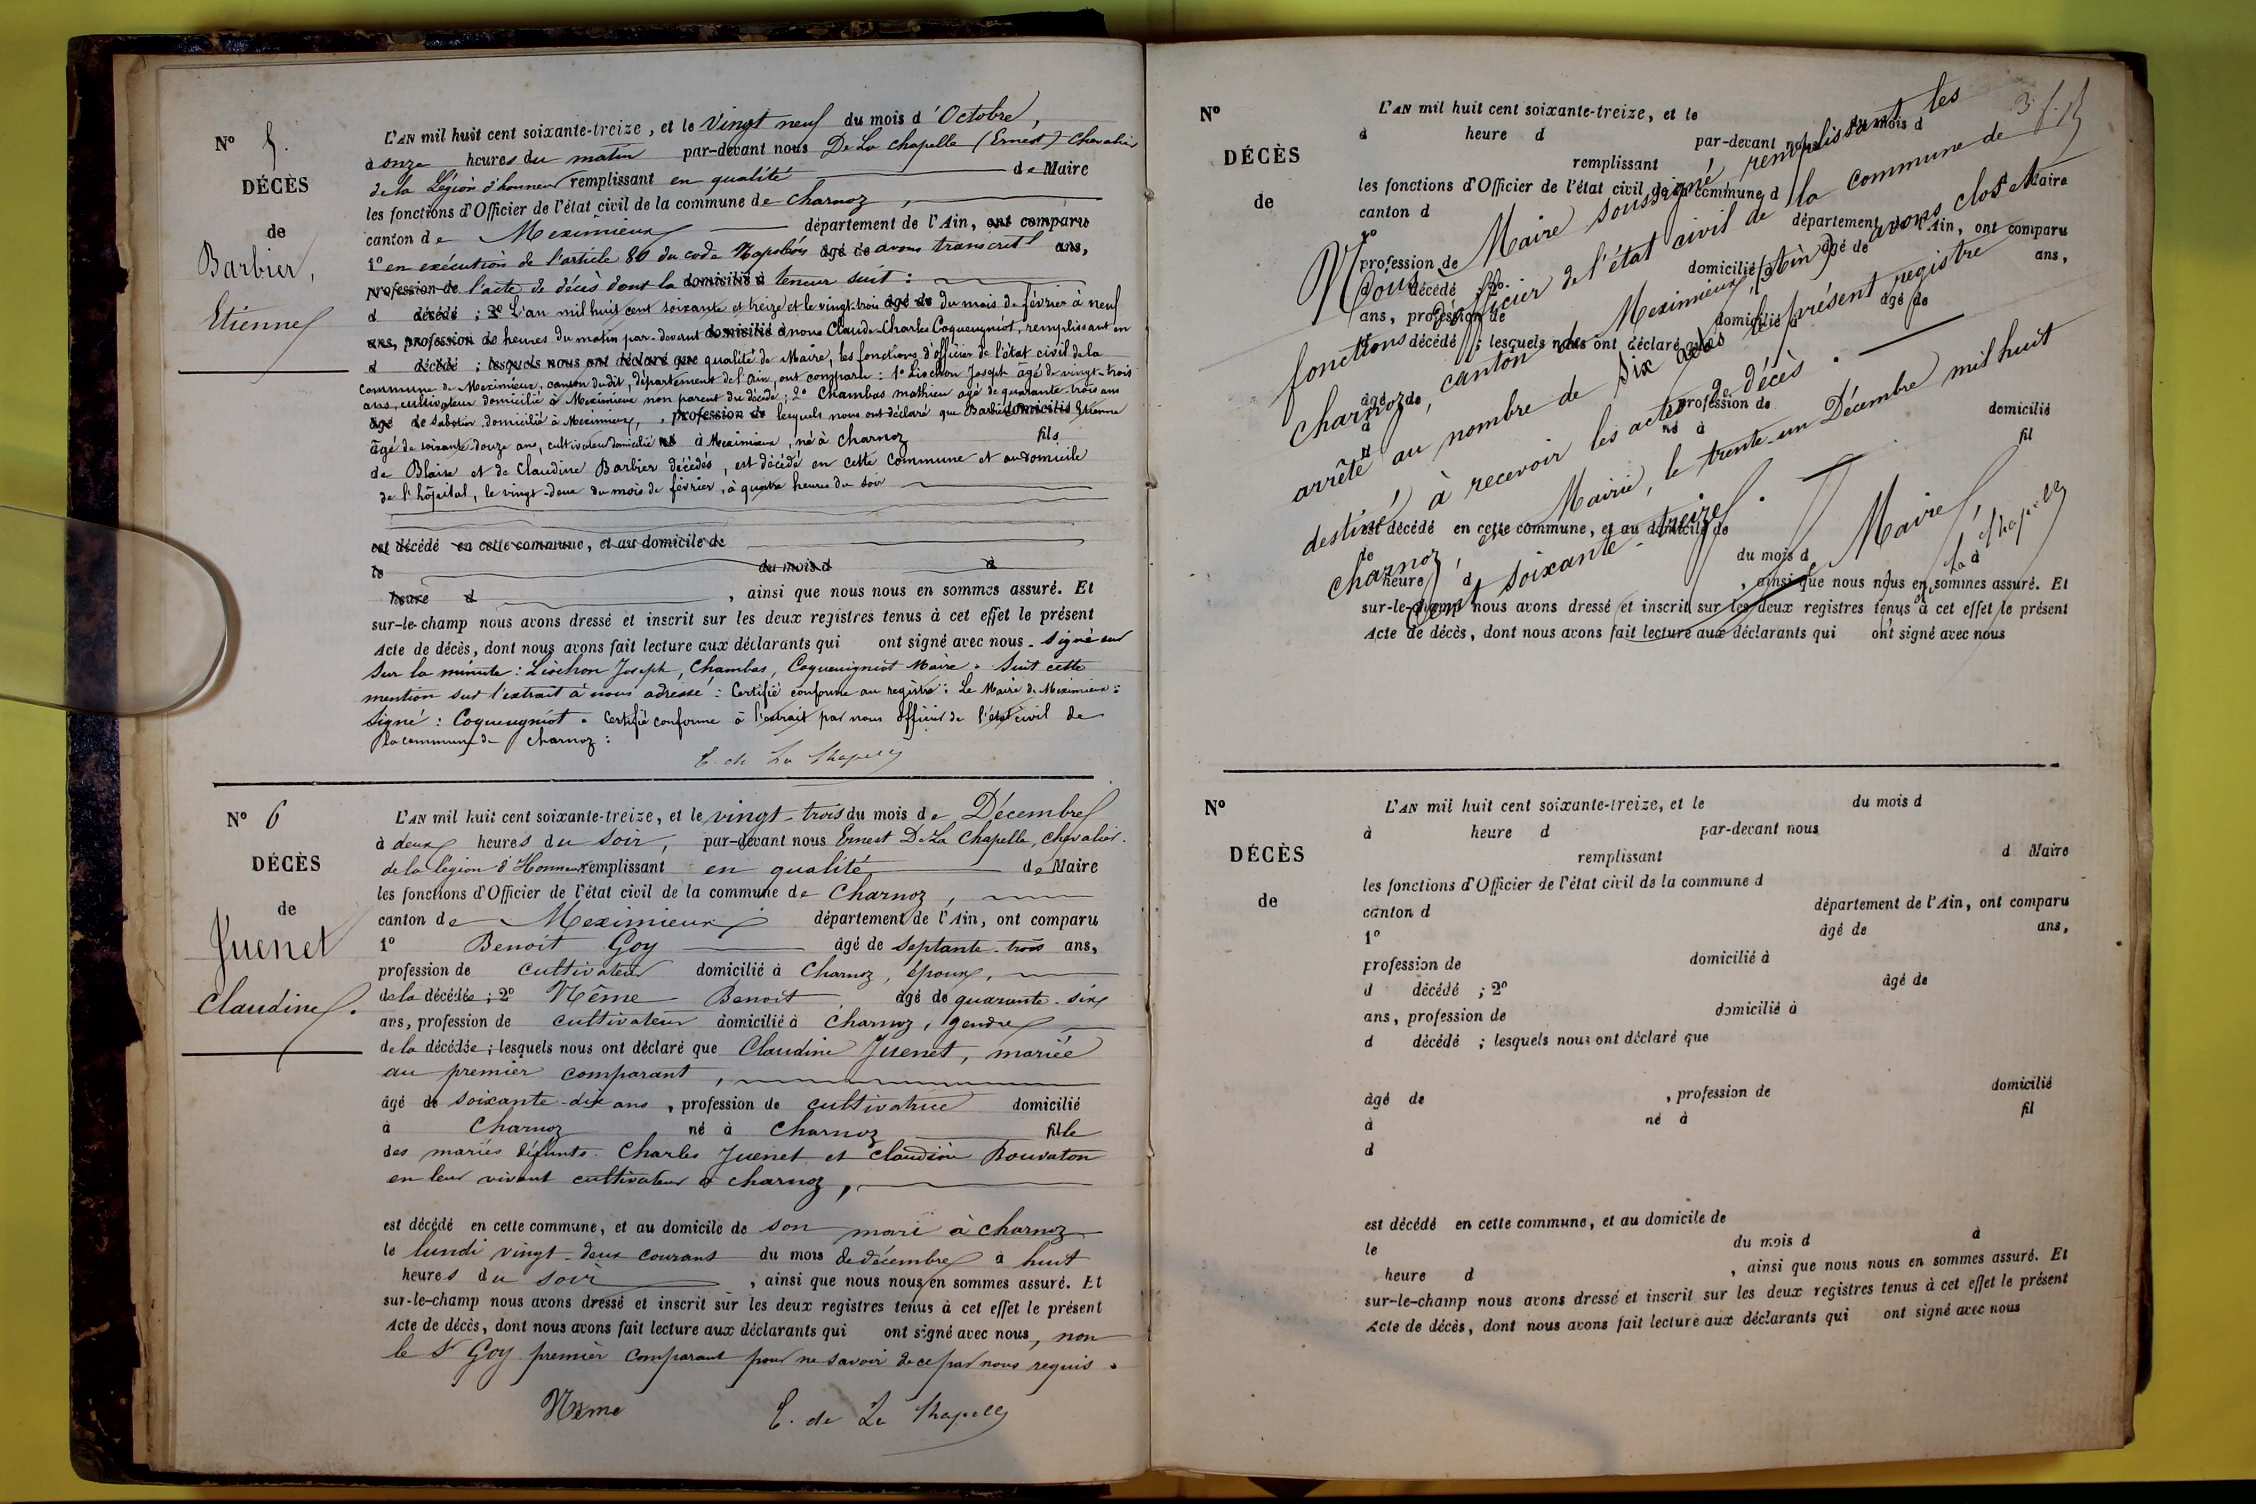 N° 5.
DÉCÈS
de
Barbier,
Etienne
L'AN mil huit cent soixante-treize, et le Vingt neuf du mois d'Octobre,
à onze heures du matin par-devant nous De La Chapelle (Ernest) Chevalier
de la Légion d'honneur remplissant en qualité de Maire
les fonctions d'Officier de l'état civil de la commune de Charnoz,
canton de Meximieux département de l'Ain, ont comparu
1° en exécution de l'article 80 du code Napoléon âgé de avons transcrit ans,
profession de l'acte de décès dont la domicilié à teneur suit :
d décédé ; 2° L'an mil huit cent soixante et treize et le vingt-trois âgé de du mois de février à neuf
ans, profession de heures du matin par-devant domicilié à nous Claude-Charles Coqueugniot, remplissant en
d décédé ; lesquels nous ont déclaré que qualité de Maire, les fonctions d'officier de l'état civil de la
Commune de Meximieux, canton dudit, département de l'ain, ont comparu : 1° Liochon Joseph âgé de vingt-trois
ans, cultivateur domicilié à Meximieux non parent du décédé ; 2° Chambas mathieu agé de quarante-trois ans
âgé de sabotier domicilié à Meximieux, , profession de lesquels nous ont déclaré que Barbier domicilié Etienne
âgé de soixante-douze ans, cultivateur domicilié né à Meximieux, né à Charnoz fils
de Blaise et de Claudine Barbier décédés, est décédé en cette commune et au domicile
de l'hôpital, le vingt-deux du mois de février, à quatre heures du soir
est décédé en cette commune, et au domicile de
le du mois d à
heure d , ainsi que nous nous en sommes assuré. Et
sur-le-champ nous avons dressé et inscrit sur les deux registres tenus à cet effet le présent
Acte de décès, dont nous avons fait lecture aux déclarants qui ont signé avec nous. Signé sur
Sur la minute : Liochon Joseph, Chambas, Coqueugniot Maire. Suit cette
mention sur l'extrait à nous adressé : Certifié conforme au registre : Le Maire de Meximieux :
Signé : Coqueugniot. Certifié conforme à l'extrait par nous officier de l'état civil de
la commune de Charnoz :
E. de La Chapelle
N° 6
DÉCÈS
de
Juenet
Claudine.
L'AN mil huit cent soixante-treize, et le vingt-trois du mois de Décembre
à deux heures du soir, par-devant nous Ernest De La Chapelle, Chevalier
de la légion d'Honneur remplissant en qualité de Maire
les fonctions d'Officier de l'état civil de la commune de Charnoz,
canton de Meximieux département de l'Ain, ont comparu
1° Benoit Goy âgé de septante-trois ans,
profession de cultivateur domicilié à Charnoz, époux,
de la décédée ; 2° Nême Benoit, âgé de quarante-six
ans, profession de cultivateur domicilié à Charnoz, gendre
de la décédée ; lesquels nous ont déclaré que Claudine Juenet, mariée
au premier comparant,
âgé de soixante-dix ans, profession de cultivatrice domicilié
à Charnoz né à Charnoz fille
des mariés défunts Charles Juenet et Claudine Bouvaton
en leur vivant cultivateur à Charnoz,
est décédé en cette commune, et au domicile de son mari à Charnoz
le lundi vingt-deux courant du mois de décembre à huit
heures du soir , ainsi que nous nous en sommes assuré. Et
sur-le-champ nous avons dressé et inscrit sur les deux registres tenus à cet effet le présent
Acte de décès, dont nous avons fait lecture aux déclarants qui ont signé avec nous, non
le Sr Goy premier comparant pour ne savoir de ce par nous requis.
Nême E. de La Chapelle
N°
DÉCÈS
de
L'AN mil huit cent soixante-treize, et le du mois d
à heure d par-devant nous
remplissant d Maire
les fonctions d'Officier de l'état civil de la commune d
canton d département de l'Ain, ont comparu
1° âgé de ans,
profession de domicilié à
d décédé ; 2° âgé de
ans, profession de domicilié à
d décédé ; lesquels nous ont déclaré que
âgé de , profession de domicilié
à né à fil
d
est décédé en cette commune, et au domicile de
le du mois d à
heure d , ainsi que nous nous en sommes assuré. Et
sur-le-champ nous avons dressé et inscrit sur les deux registres tenus à cet effet le présent
Acte de décès, dont nous avons fait lecture aux déclarants qui ont signé avec nous
Nous Maire soussigné remplissant les
fonctions d'officier de l'état civil de la commune de
Charnoz, canton de Meximieux (Ain) avons clos et
arrêté au nombre de six actes le présent registre
destiné à recevoir les actes de décès.
Charnoz, en Mairie, le trente-un Décembre mil huit
cent soixante-treize.
Maire,
E. de La Chapelle
N°
DÉCÈS
de
L'AN mil huit cent soixante-treize, et le du mois d
à heure d par-devant nous
remplissant d Maire
les fonctions d'Officier de l'état civil de la commune d
canton d département de l'Ain, ont comparu
1° âgé de ans,
profession de domicilié à
d décédé ; 2° âgé de
ans, profession de domicilié à
d décédé ; lesquels nous ont déclaré que
âgé de , profession de domicilié
à né à fil
d
est décédé en cette commune, et au domicile de
le du mois d à
heure d , ainsi que nous nous en sommes assuré. Et
sur-le-champ nous avons dressé et inscrit sur les deux registres tenus à cet effet le présent
Acte de décès, dont nous avons fait lecture aux déclarants qui ont signé avec nous